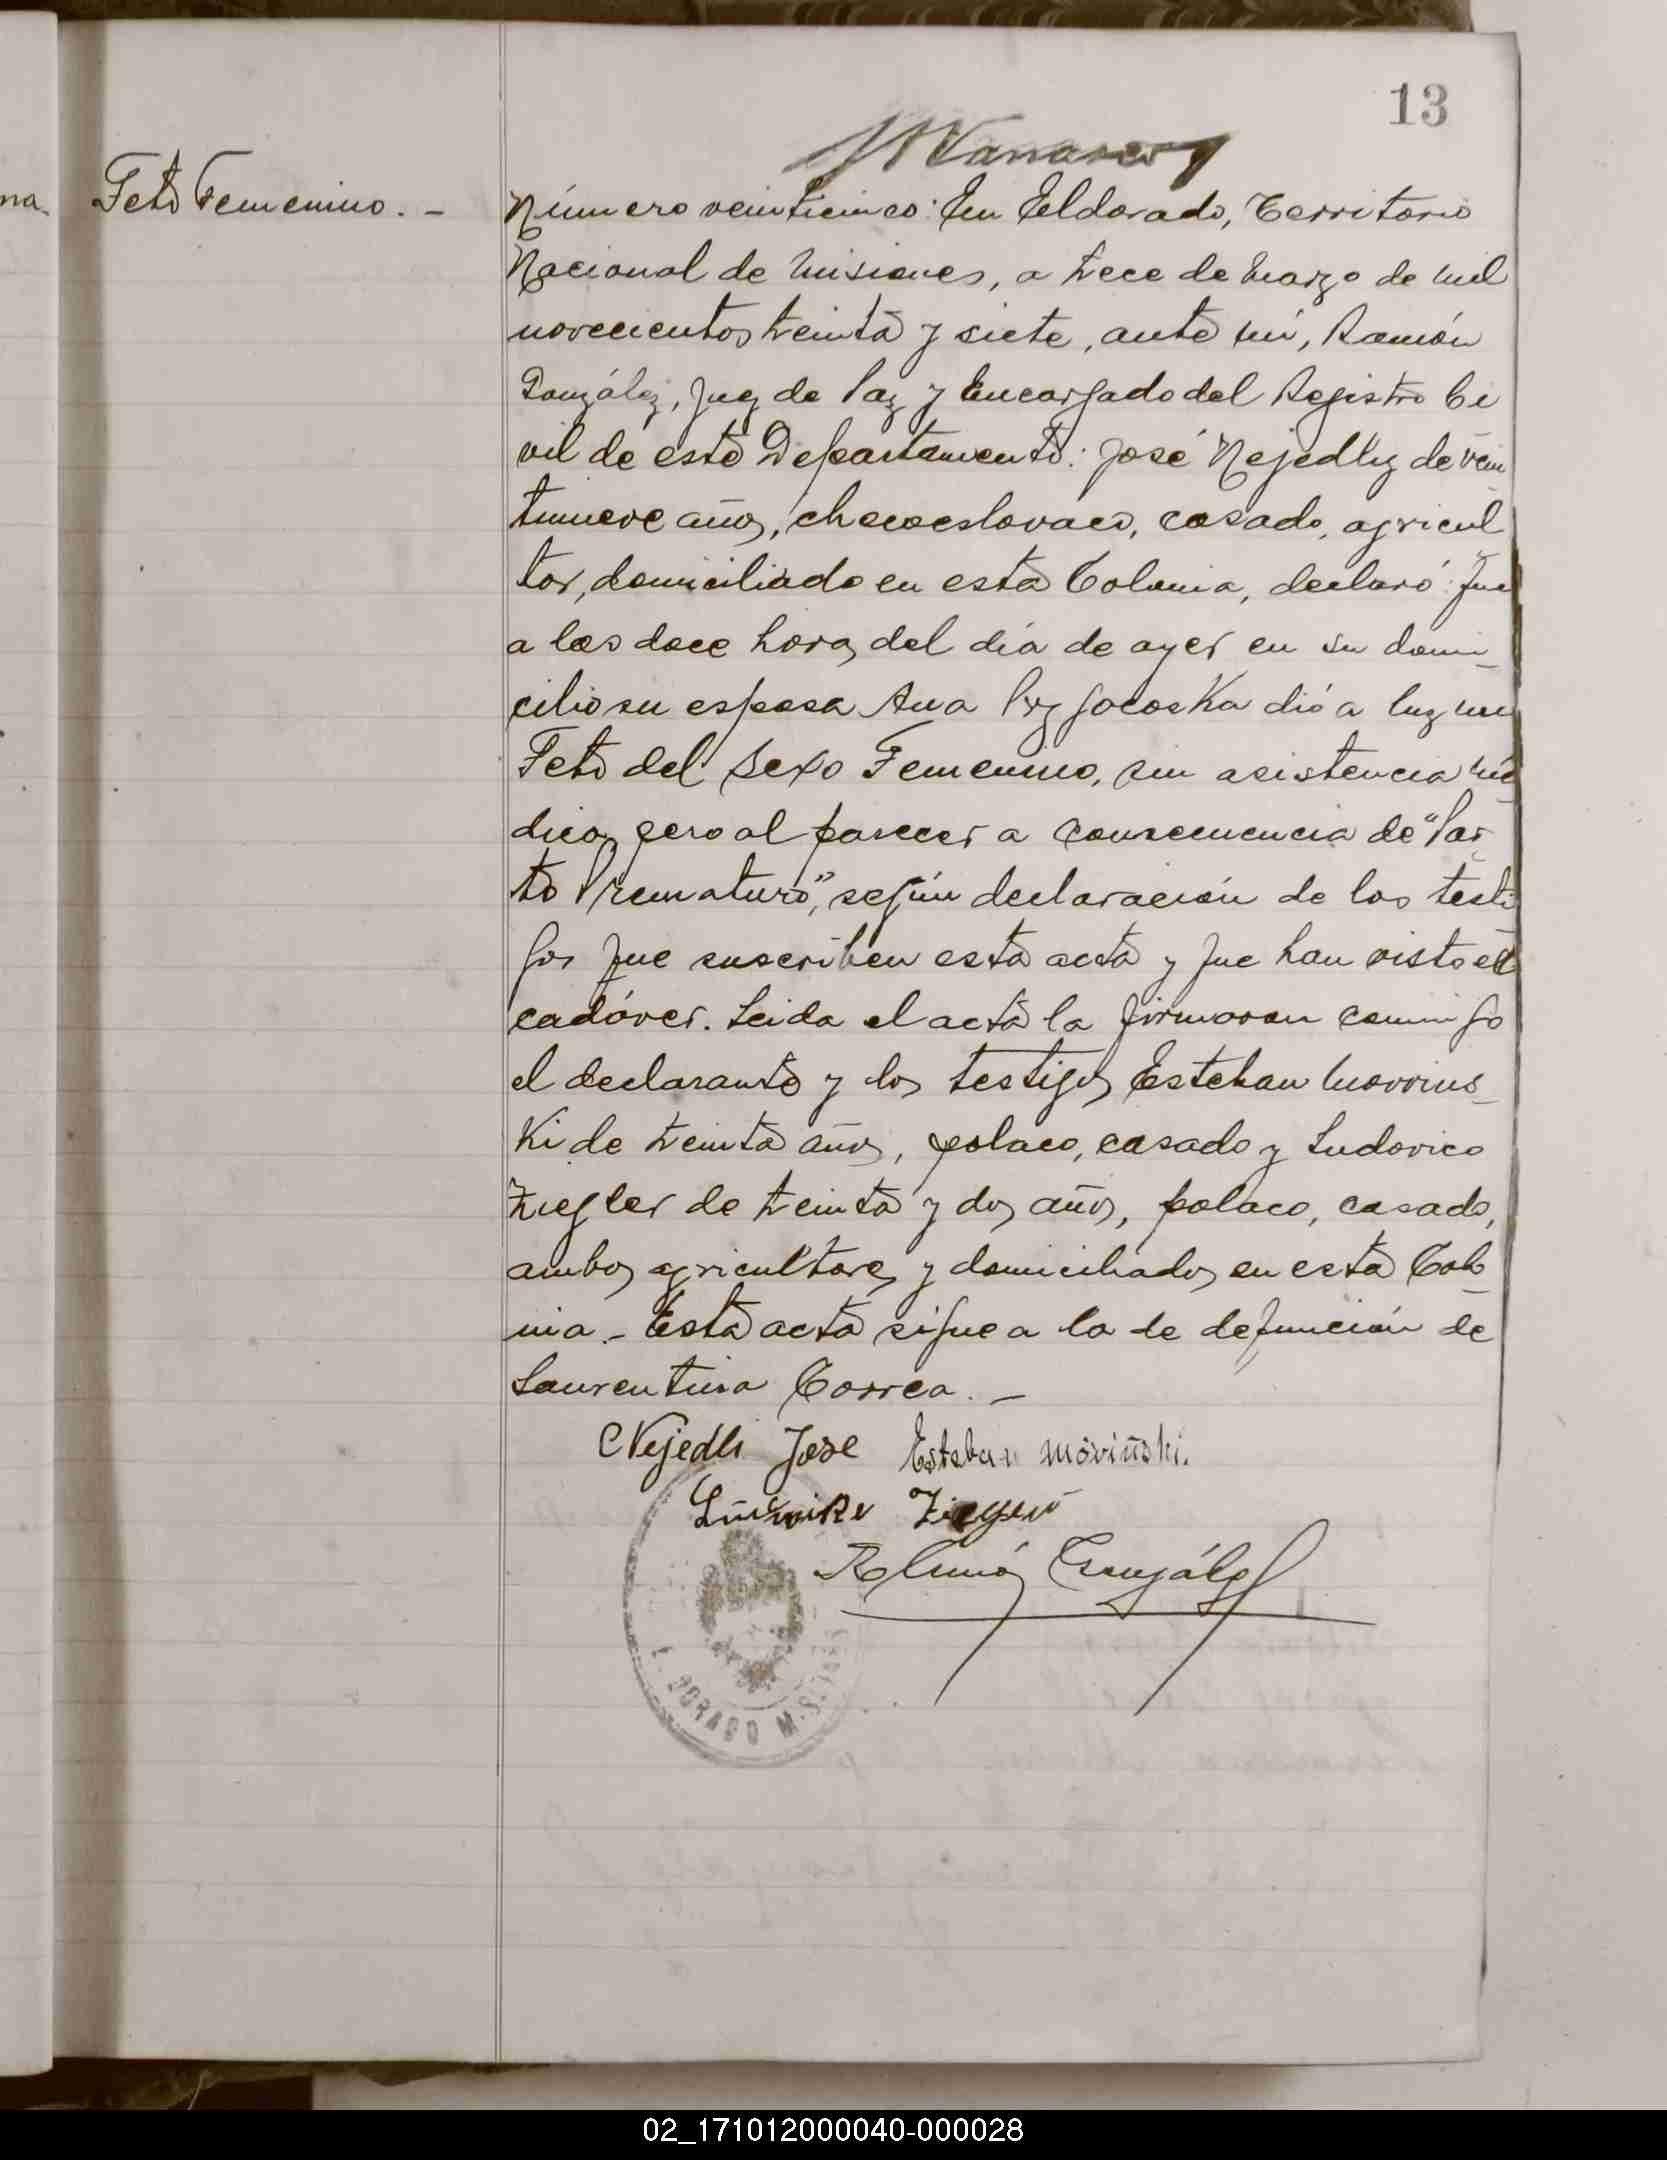 13
Feto Femenino. -
Número veinticinco: En Eldorado, Territorio
Nacional de Misiones, a trece de Marzo de mil
novecientos treinta y siete, ante mí, Ramón
González, Juez de Paz y Encargado del Registro Ci
vil de este Departamento: José Nejedly de vein
tinueve años, checoeslovaco, casado, agricul
tor, domiciliado en esta Colonia, declaró: Que
a las doce horas del día de ayer en su domi-
cilio su esposa Ana dió a luz un
Feto del Sexo Femenino, sin asistencia mé
dica, pero al parecer a consecuencia de "Par
to Prematuro", según declaración de los testi
gos que suscriben esta acta y que han visto el
cadáver. Leida el acta la firmaron conmigo
el declarante y los testigos Esteban Movrins-
Ki de treinta años, polaco, casado y Ludovico
Ziegler de treinta y dos años, polaco, casado,
ambos agricultores y domiciliados en esta Colo
nia.- Esta acta sigue a la de defunción de
Laurentina Correa. -
Nejedli Jose Esteban Moviñski.
Ramón González
L DORADO MISIONES
02_171012000040-000028